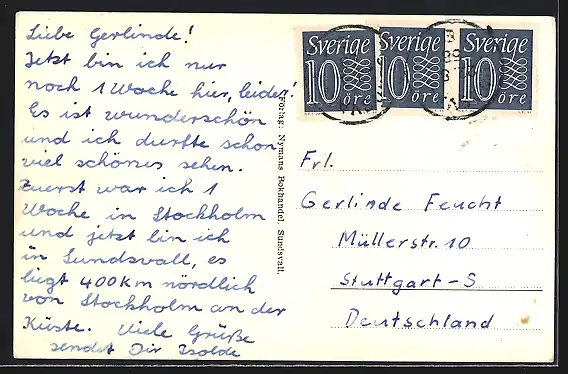 Liebe Gerlinde!
Jetzt bin ich nur
noch 1 Woche hier, leider!
Es ist wunderschön
und ich durfte schon
viel schönes sehen.
Zuerst war ich 1
Woche in Stockholm
und jetzt bin ich
in Sundsvall, es
liegt 400 Km nördlich
von Stockholm an der
Küste. Viele Grüße
sendet Dir Isolde
Förlag: Nymans Bokhandel Sundsvall.
Sverige Sverige Sverige
10 öre 10 öre 10 öre
Frl.
Gerlinde Feucht
Müllerstr. 10
Stuttgart-S
Deutschland